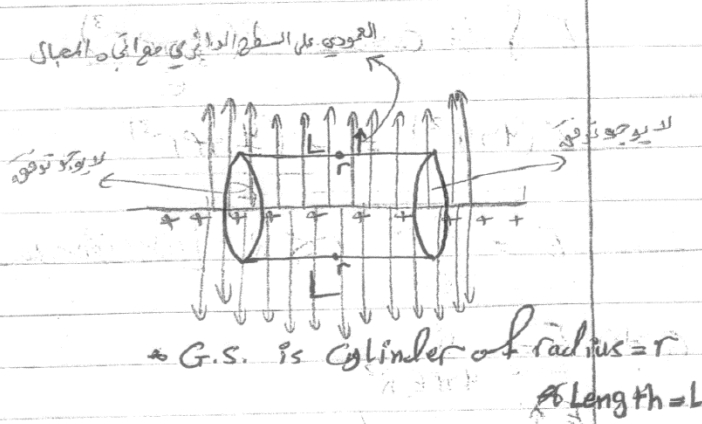 العمودي على السطح الدائري مع اتجاه المجال
لا يوجد تدفق
لا يوجد تدفق
L r
+ + + + + + + + + +
r
L
* G.S. is Cylinder of radius = r
& Length = L